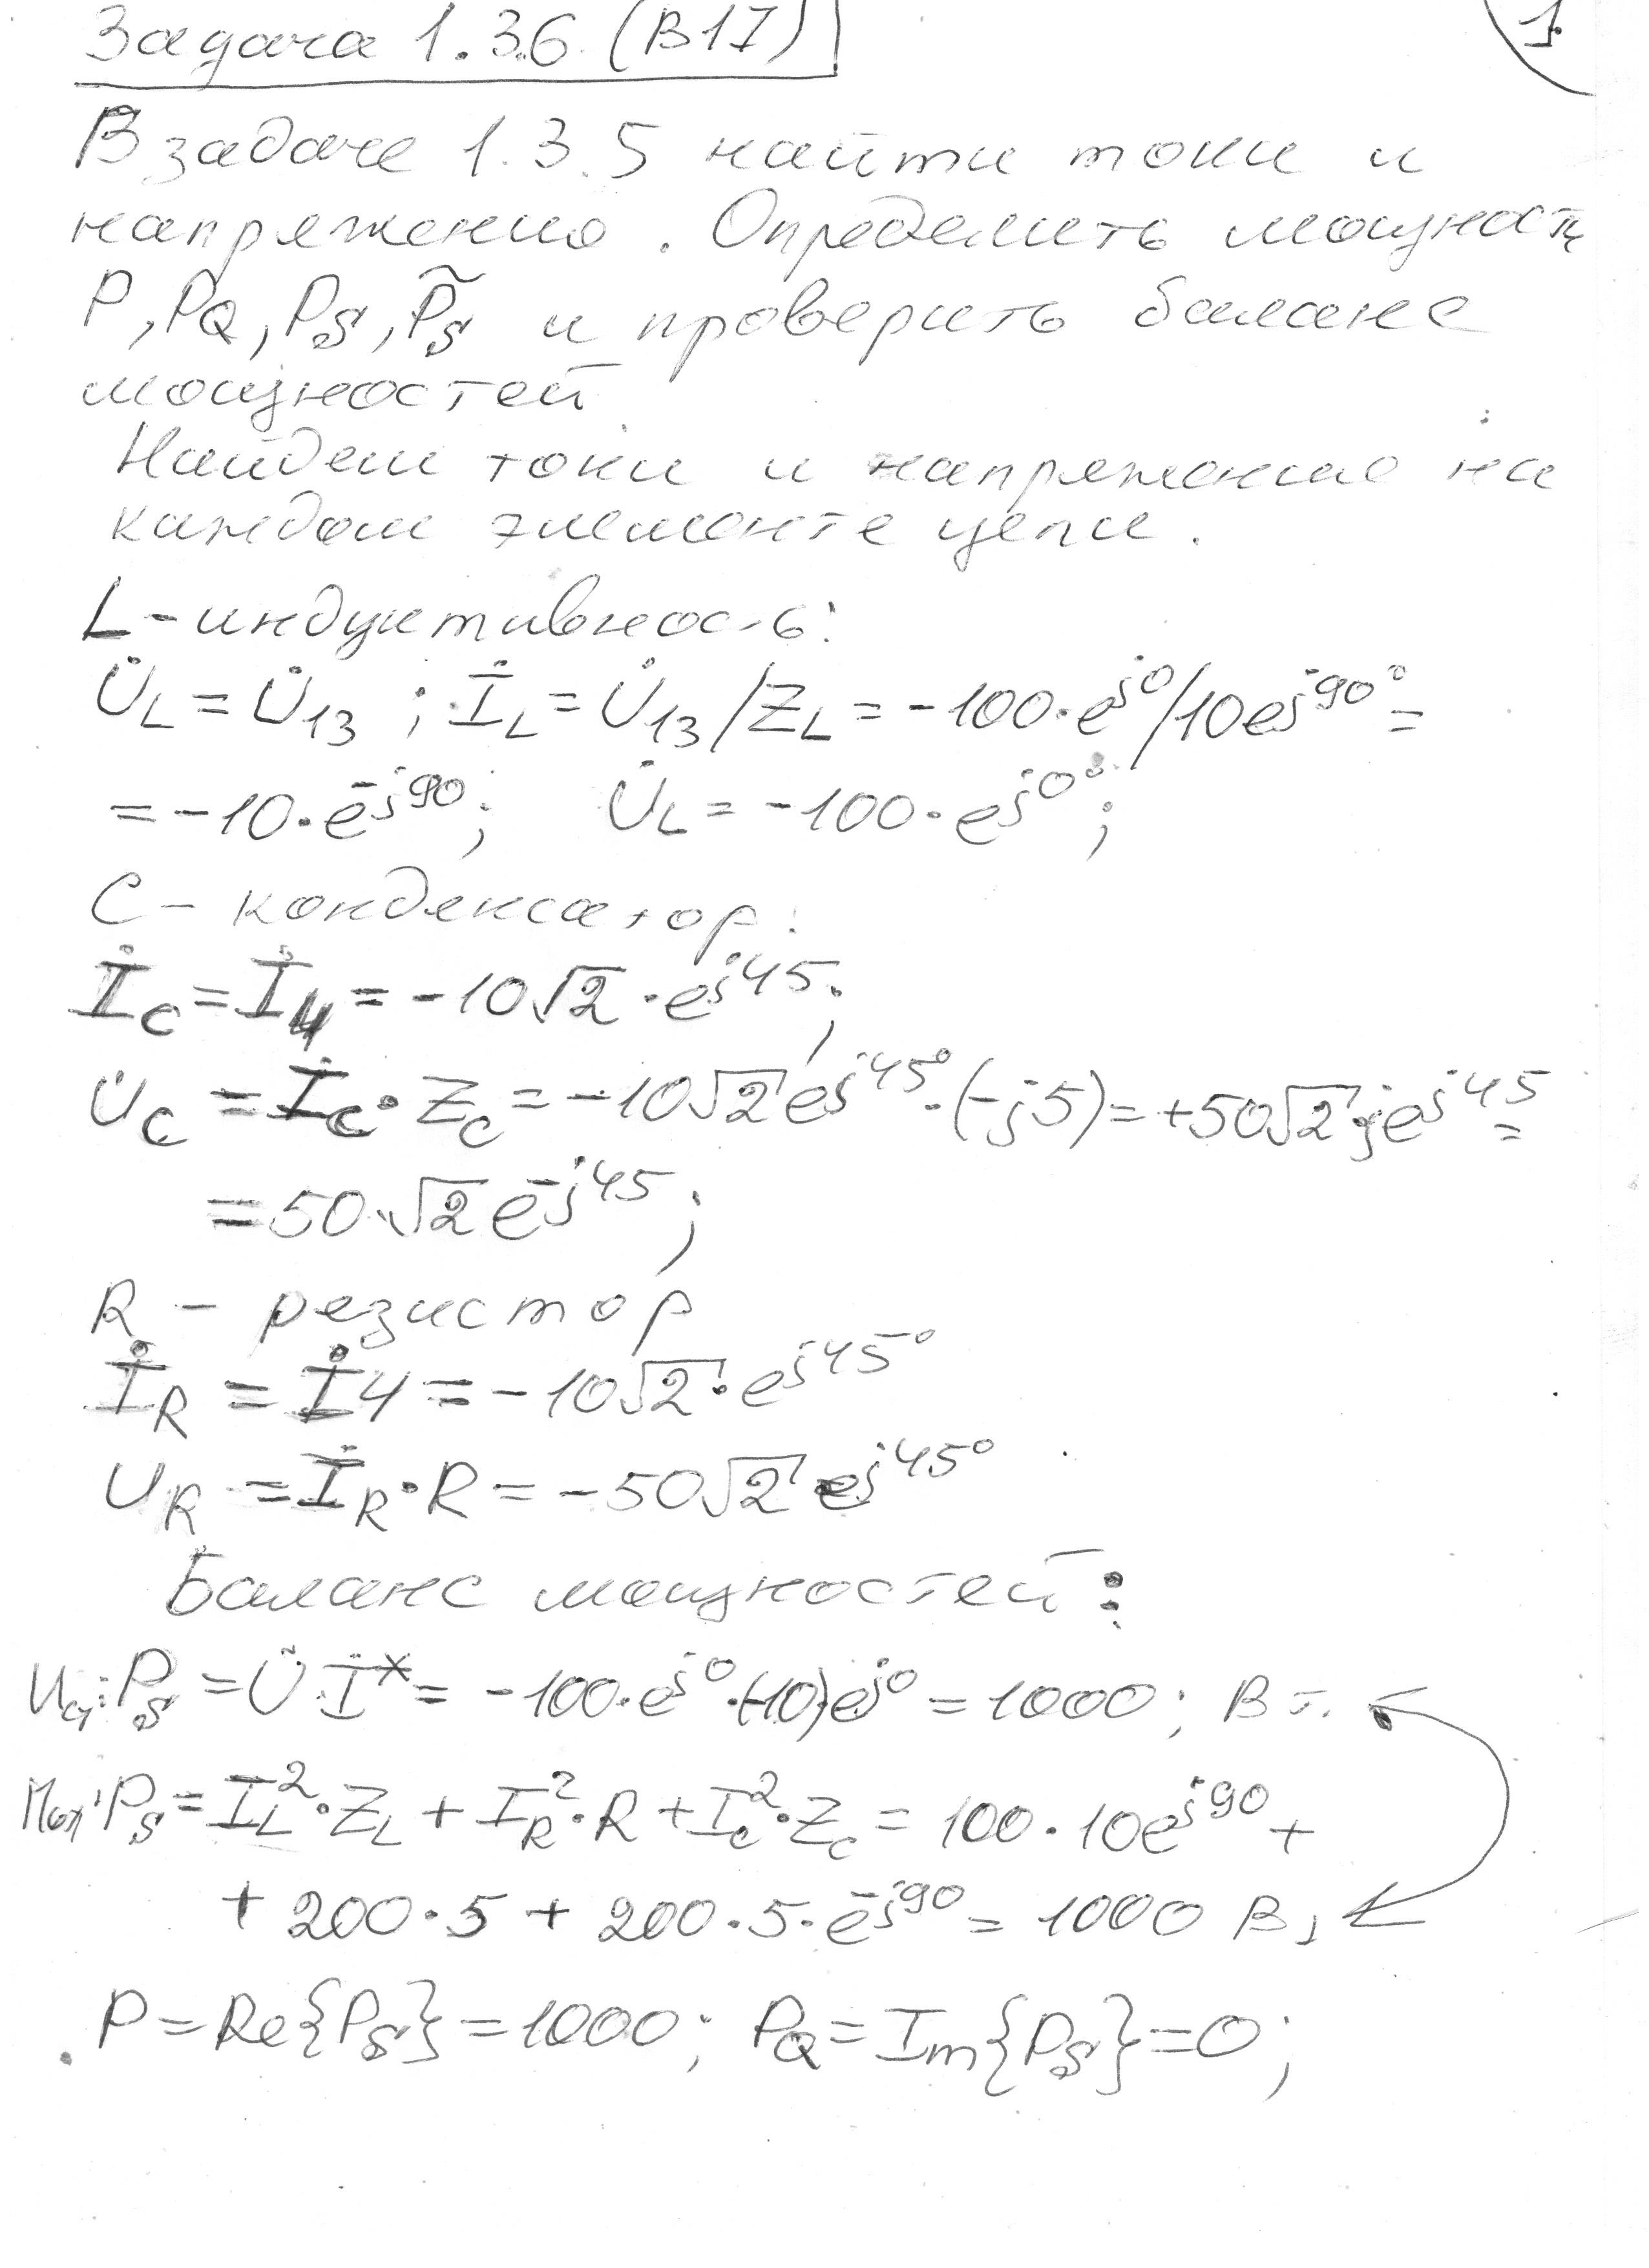 Задача 1.3.6 (В1I)
1.
В задаче 1.3.5 найти токи и
напряжению. Определить мощность
P, P_Q, P_S, P̃_S и проверить баланс
мощностей
Найдем токи и напряжение на
каждом элементе цепи.
L - индуктивность:
U̇_L = U̇_13 ; İ_L = U̇_13/Z_L = -100·e^{j0}/10e^{j90°} =
= -10·e^{-j90}; U̇_L = -100·e^{j0°};
C - конденсатор:
İ_C = İ_4 = -10√2·e^{j45};
U̇_C = İ_C·Z_C = -10√2 e^{j45°}·(-j5) = +50√2 j e^{j45} =
= 50·√2 e^{-j45};
R - резистор
İ_R = İ4 = -10√2·e^{j45°}
U_R = İ_R·R = -50√2 e^{j45°}
Баланс мощностей:
P_S = U̇ İ* = -100·e^{j0}·(-10)·e^{j0} = 1000; Вт.
P_S = I_L^2·Z_L + I_R^2·R + I_C^2·Z_C = 100·10e^{j90} +
+ 200·5 + 200·5·e^{-j90} = 1000 В
P = Re{P_S} = 1000; P_Q = Im{P_S} = 0;